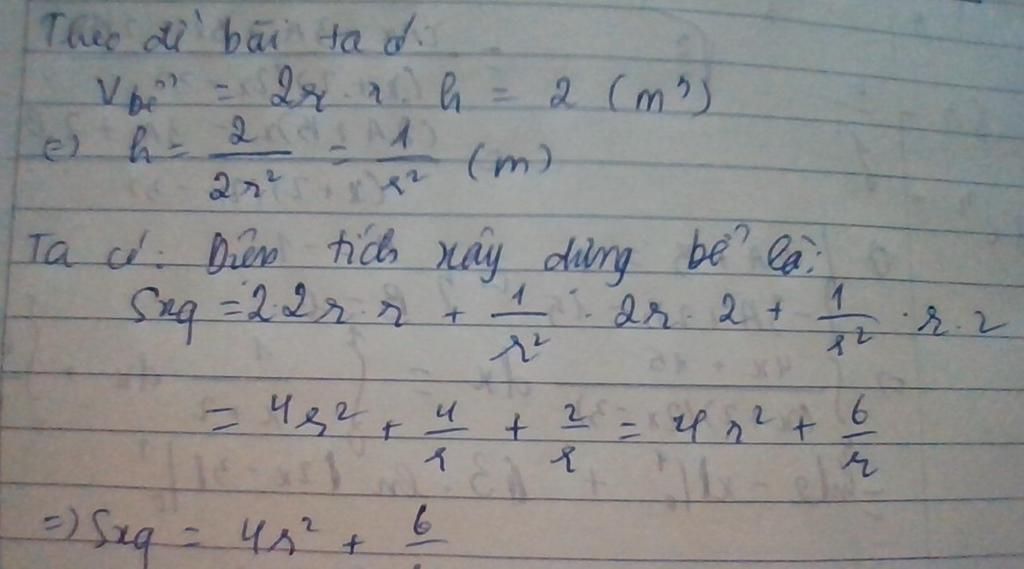 Theo đề bài ta có:
V bể = 2x . x . h = 2 (m³)
⇔ h = 2/2x² = 1/x² (m)
Ta có: Diện tích xây dựng bể là:
Sxq = 2.2x.x + 1/x² . 2x . 2 + 1/x² . x . 2
= 4x² + 4/x + 2/x = 4x² + 6/x
=> Sxq = 4x² + 6